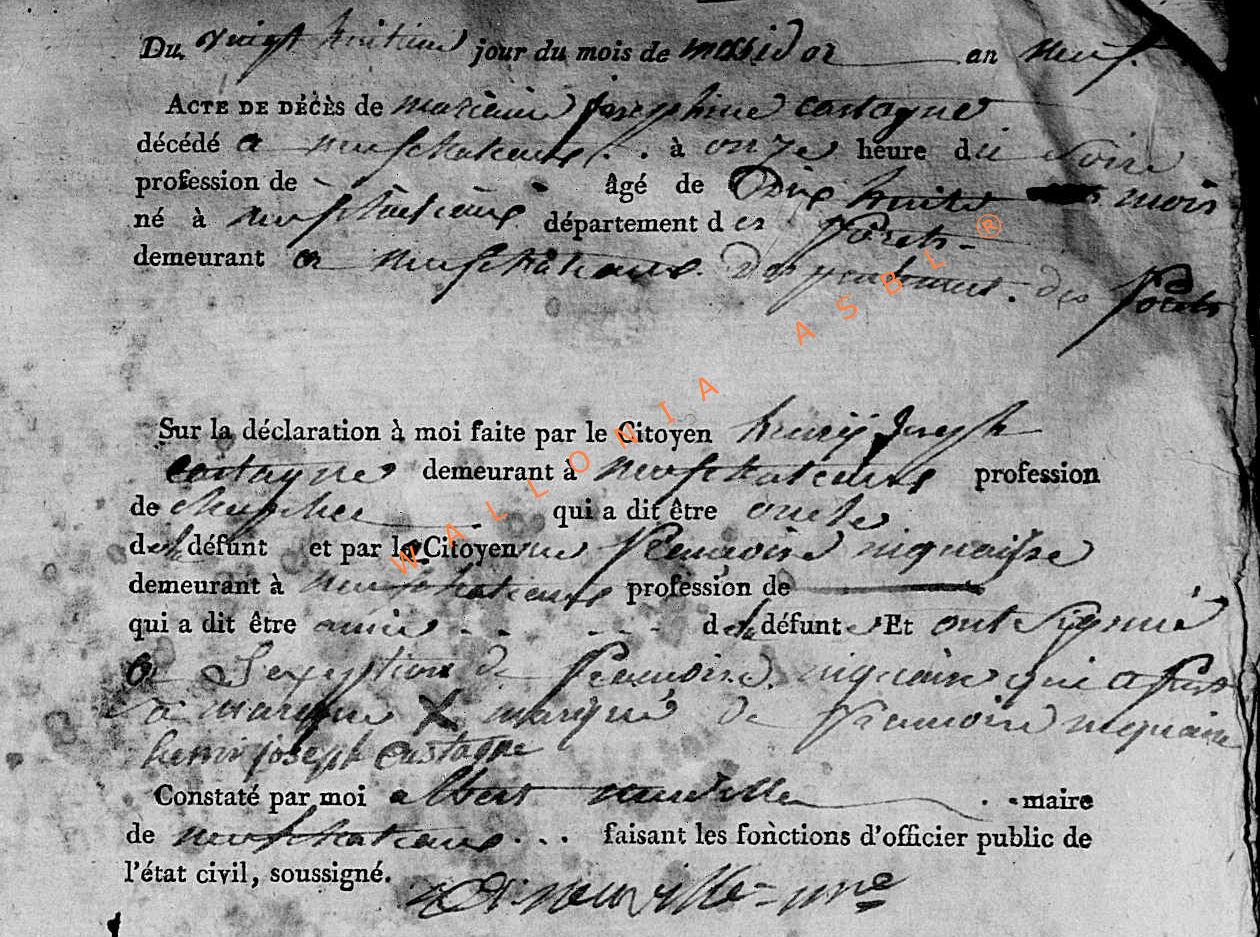 Du vingt huitieme jour du mois de messidor an neuf.
ACTE DE DÉCÈS de josephine castagne
décédé a neufchateaux . . à onze heure du soire
profession de - âgé de Dix huite mois
né à neufchateaux département des forets -
demeurant a neufchateaux. departement. des forets
Sur la déclaration à moi faite par le Citoyen henry joseph
castagne demeurant à neufchateaux profession
de qui a dit être oncle
de la défunt et par la Citoyenne niquaisse
demeurant à neufchateaux profession de
qui a dit être amie - - - - - de la défunte Et ont signué
a Lexeption de niquaise qui a fait
sa marque X marque de niquaise
henri joseph castagne
Constaté par moi albert neuville . maire
de neufchateaux . . . faisant les fonctions d'officier public de
l'état civil, soussigné.
A: neuville - mre
WALLONIA ASBL ®